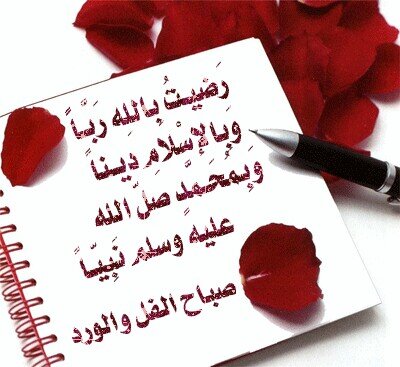 رَضيتُ بِاللهِ رَبَّاً
وَبِالإسْلامِ ديـناً
وَبِمُحَمَّدٍ صلّ الله
عليه وسلم نَبِيّـاً
صباح الفل والورد